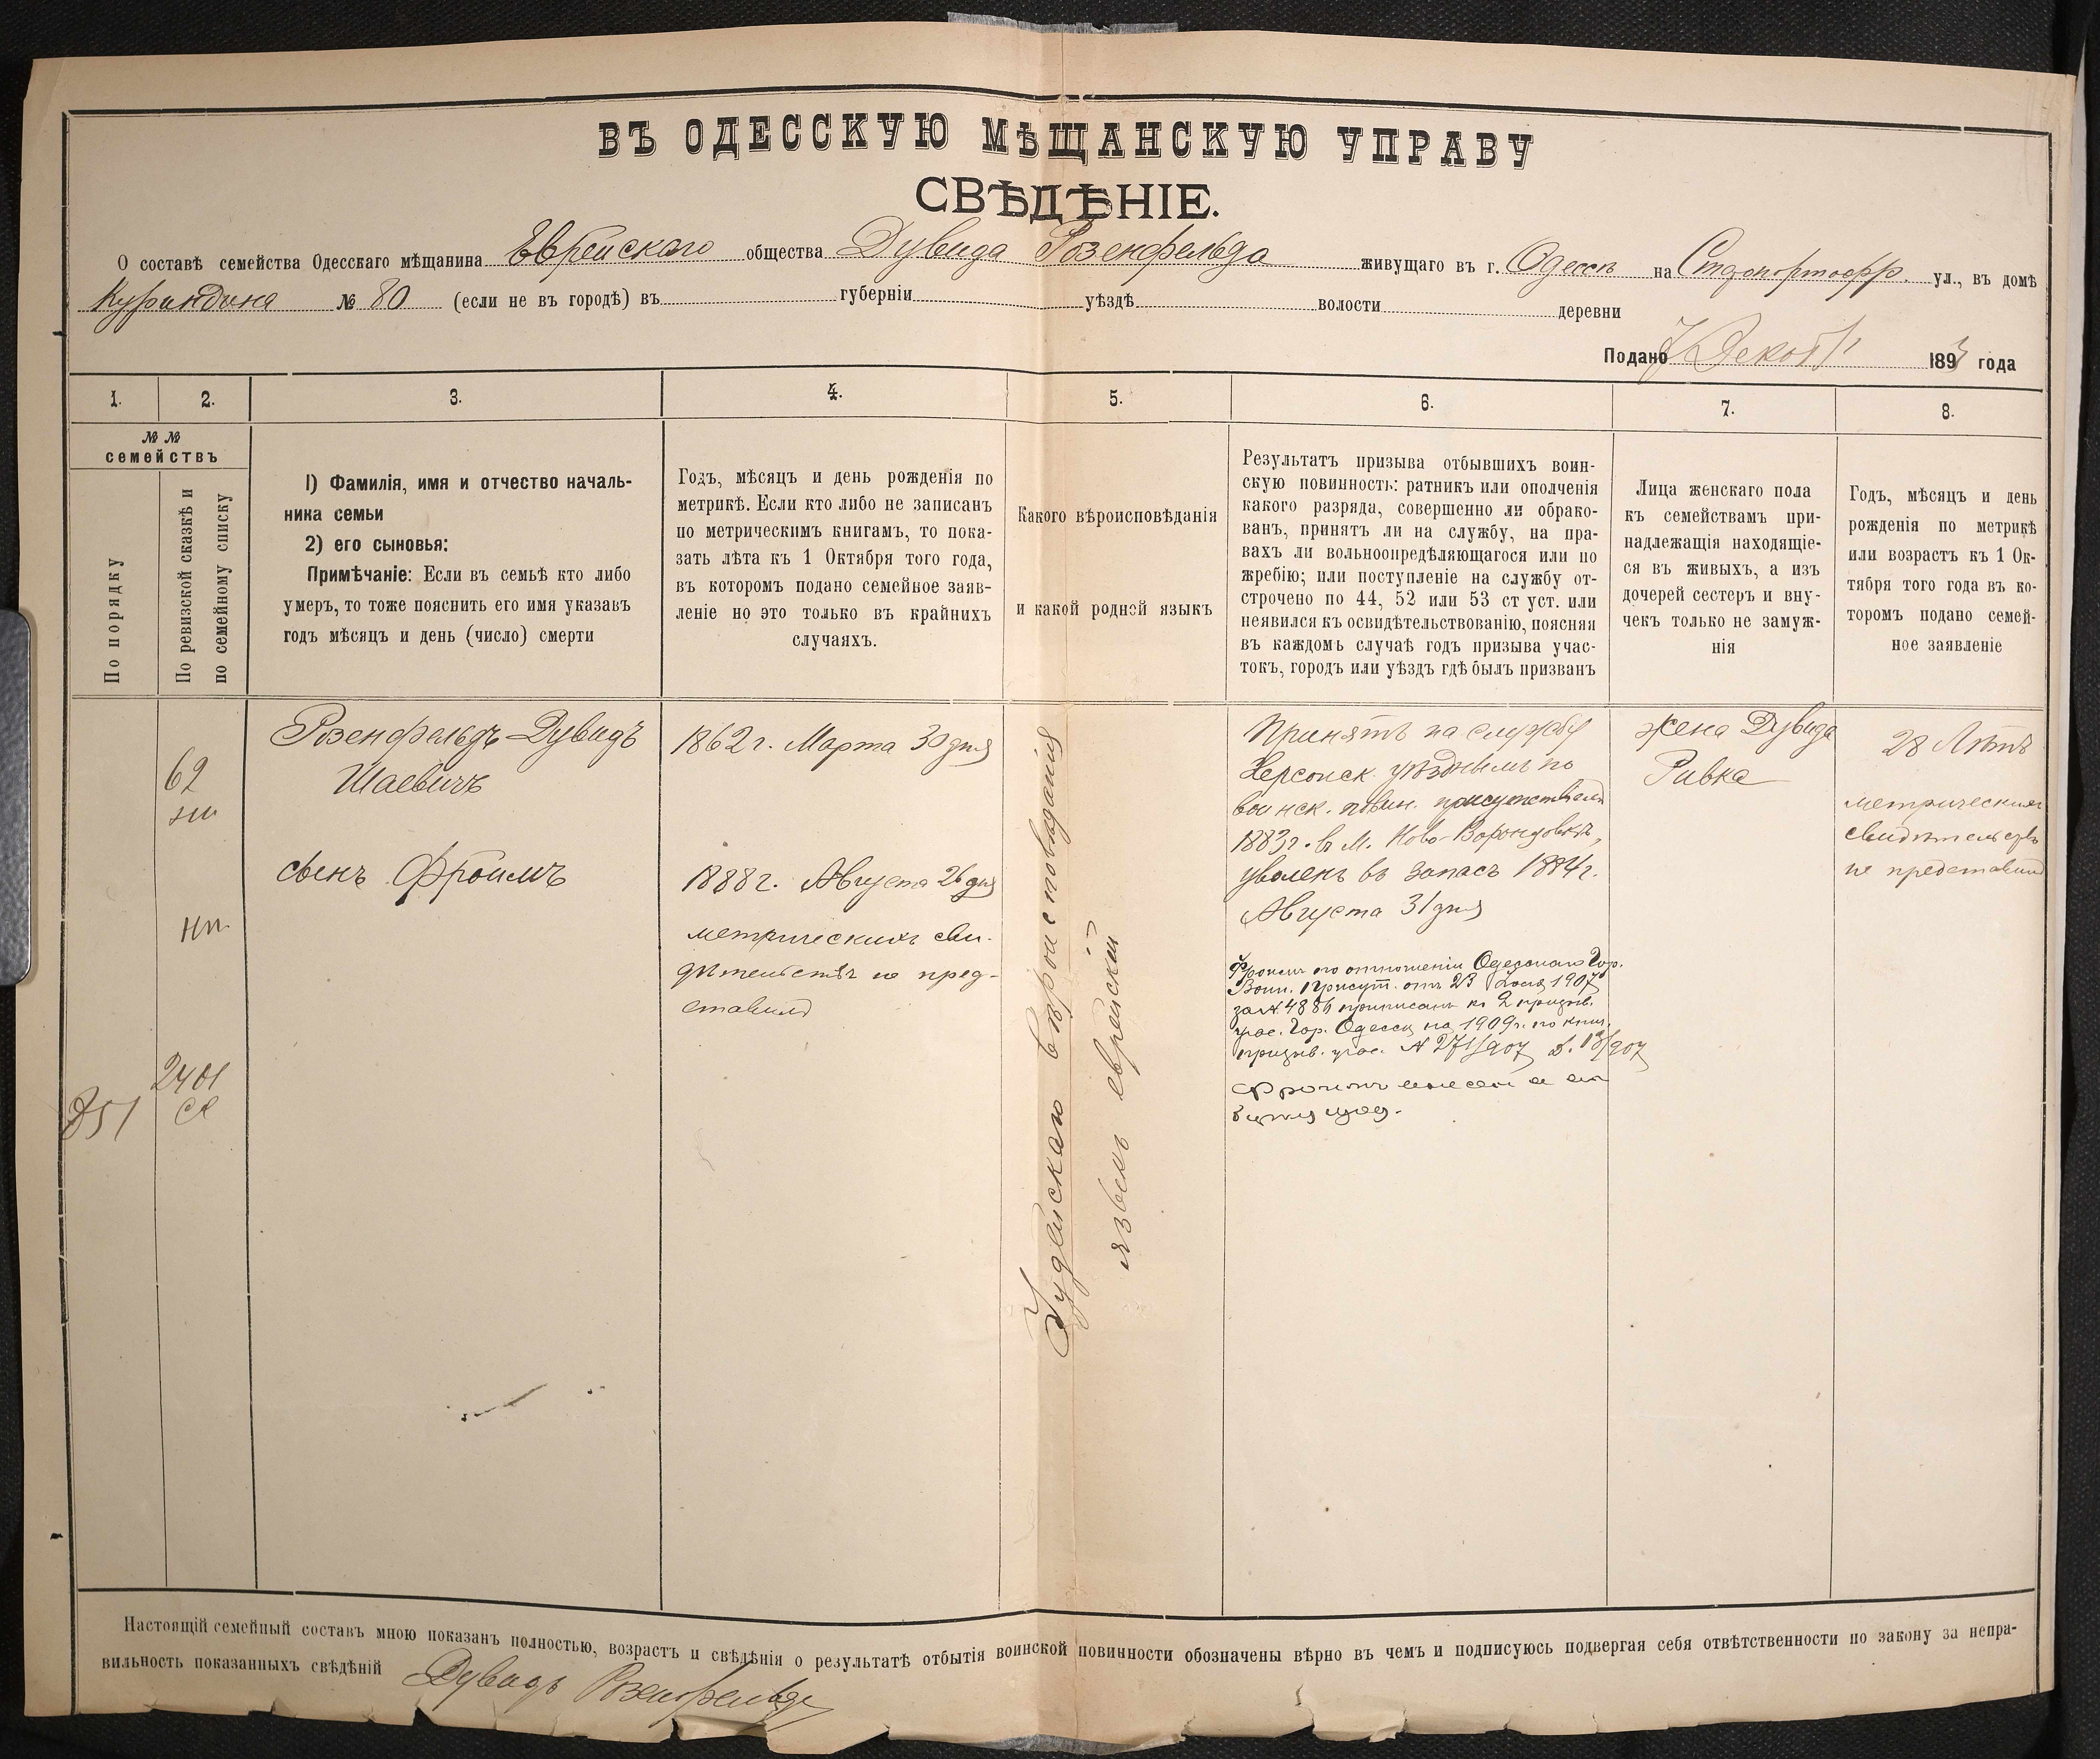 ВЪ ОДЕССКУЮ МѢЩАНСКУЮ УПРАВУ
СВѢДѢНІЕ.
О составѣ семейства Одесскаго мѣщанина Еврейскаго общества Дувида Розенфельда живущаго въ г. Одессѣ на Старопортофр. ул., въ домѣ
№ 80 (если не въ городѣ) въ губерніи уѣздѣ волости деревни
Подано 7 Декаб 1893 года
1. 2. 3. 4. 5. 6. 7. 8.
№ №
семействъ
По порядку
По ревизской сказкѣ и
по семейному списку
1) Фамилія, имя и отчество началь-
ника семьи
2) его сыновья:
Примѣчаніе: Если въ семьѣ кто либо
умеръ, то тоже пояснить его имя указавъ
годъ мѣсяцъ и день (число) смерти
Годъ, мѣсяцъ и день рожденія по
метрикѣ. Если кто либо не записанъ
по метрическимъ книгамъ, то пока-
зать лѣта къ 1 Октября того года,
въ которомъ подано семейное заяв-
леніе но это только въ крайнихъ
случаяхъ.
Какого вѣроисповѣданія
и какой родной языкъ
Результатъ призыва отбывшихъ воин-
скую повинность: ратникъ или ополченія
какого разряда, совершенно ли обрако-
ванъ, принятъ ли на службу, на пра-
вахъ ли вольноопредѣляющагося или по
жребію; или поступленіе на службу от-
строчено по 44, 52 или 53 ст уст. или
неявился къ освидѣтельствованію, поясняя
въ каждомъ случаѣ годъ призыва учас-
токъ, городъ или уѣздъ гдѣ былъ призванъ
Лица женскаго пола
къ семействамъ при-
надлежащія находящіе-
ся въ живыхъ, а изъ
дочерей сестеръ и вну-
чекъ только не замуж-
нія
Годъ, мѣсяцъ и день
рожденія по метрикѣ
или возрастъ къ 1 Ок-
тября того года въ ко-
торомъ подано семей-
ное заявленіе
62
Розенфельдъ Дувидъ
Шаевичъ
1862 г. Марта 30 дня
сынъ Фроимъ
1888 г. Августа 26 дня
метрическихъ сви-
дѣтельствъ не пред-
ставилъ
нп.
2401
851
Іудейскаго вѣроисповѣданія
языкъ еврейскій
Принятъ на службу
Херсонск. уѣзднымъ по
воинск. повин. присутствіемъ
1883 г. в М. Ново-Воронцовкѣ,
уволенъ въ запасъ 1884 г.
Августа 31 дня
Фроимъ по отношенію Одесскаго Гор.
Воин. Присут. отъ 23 1907
за № 4886 приписанъ къ 2 призыв.
учас. Гор. Одессы на 1909 г. по книг.
призыв. учас. № 271/907
Фроимъ
жена Дувида
Ривка
28 Лѣтъ
метрическихъ
свидѣтельствъ
не представилъ
Настоящій семейный составъ мною показанъ полностью, возрастъ и свѣдѣнія о результатѣ отбытія воинской повинности обозначены вѣрно въ чемъ и подписуюсь подвергая себя отвѣтственности по закону за непра-
вильность показанныхъ свѣдѣній Дувидъ Розенфельдъ